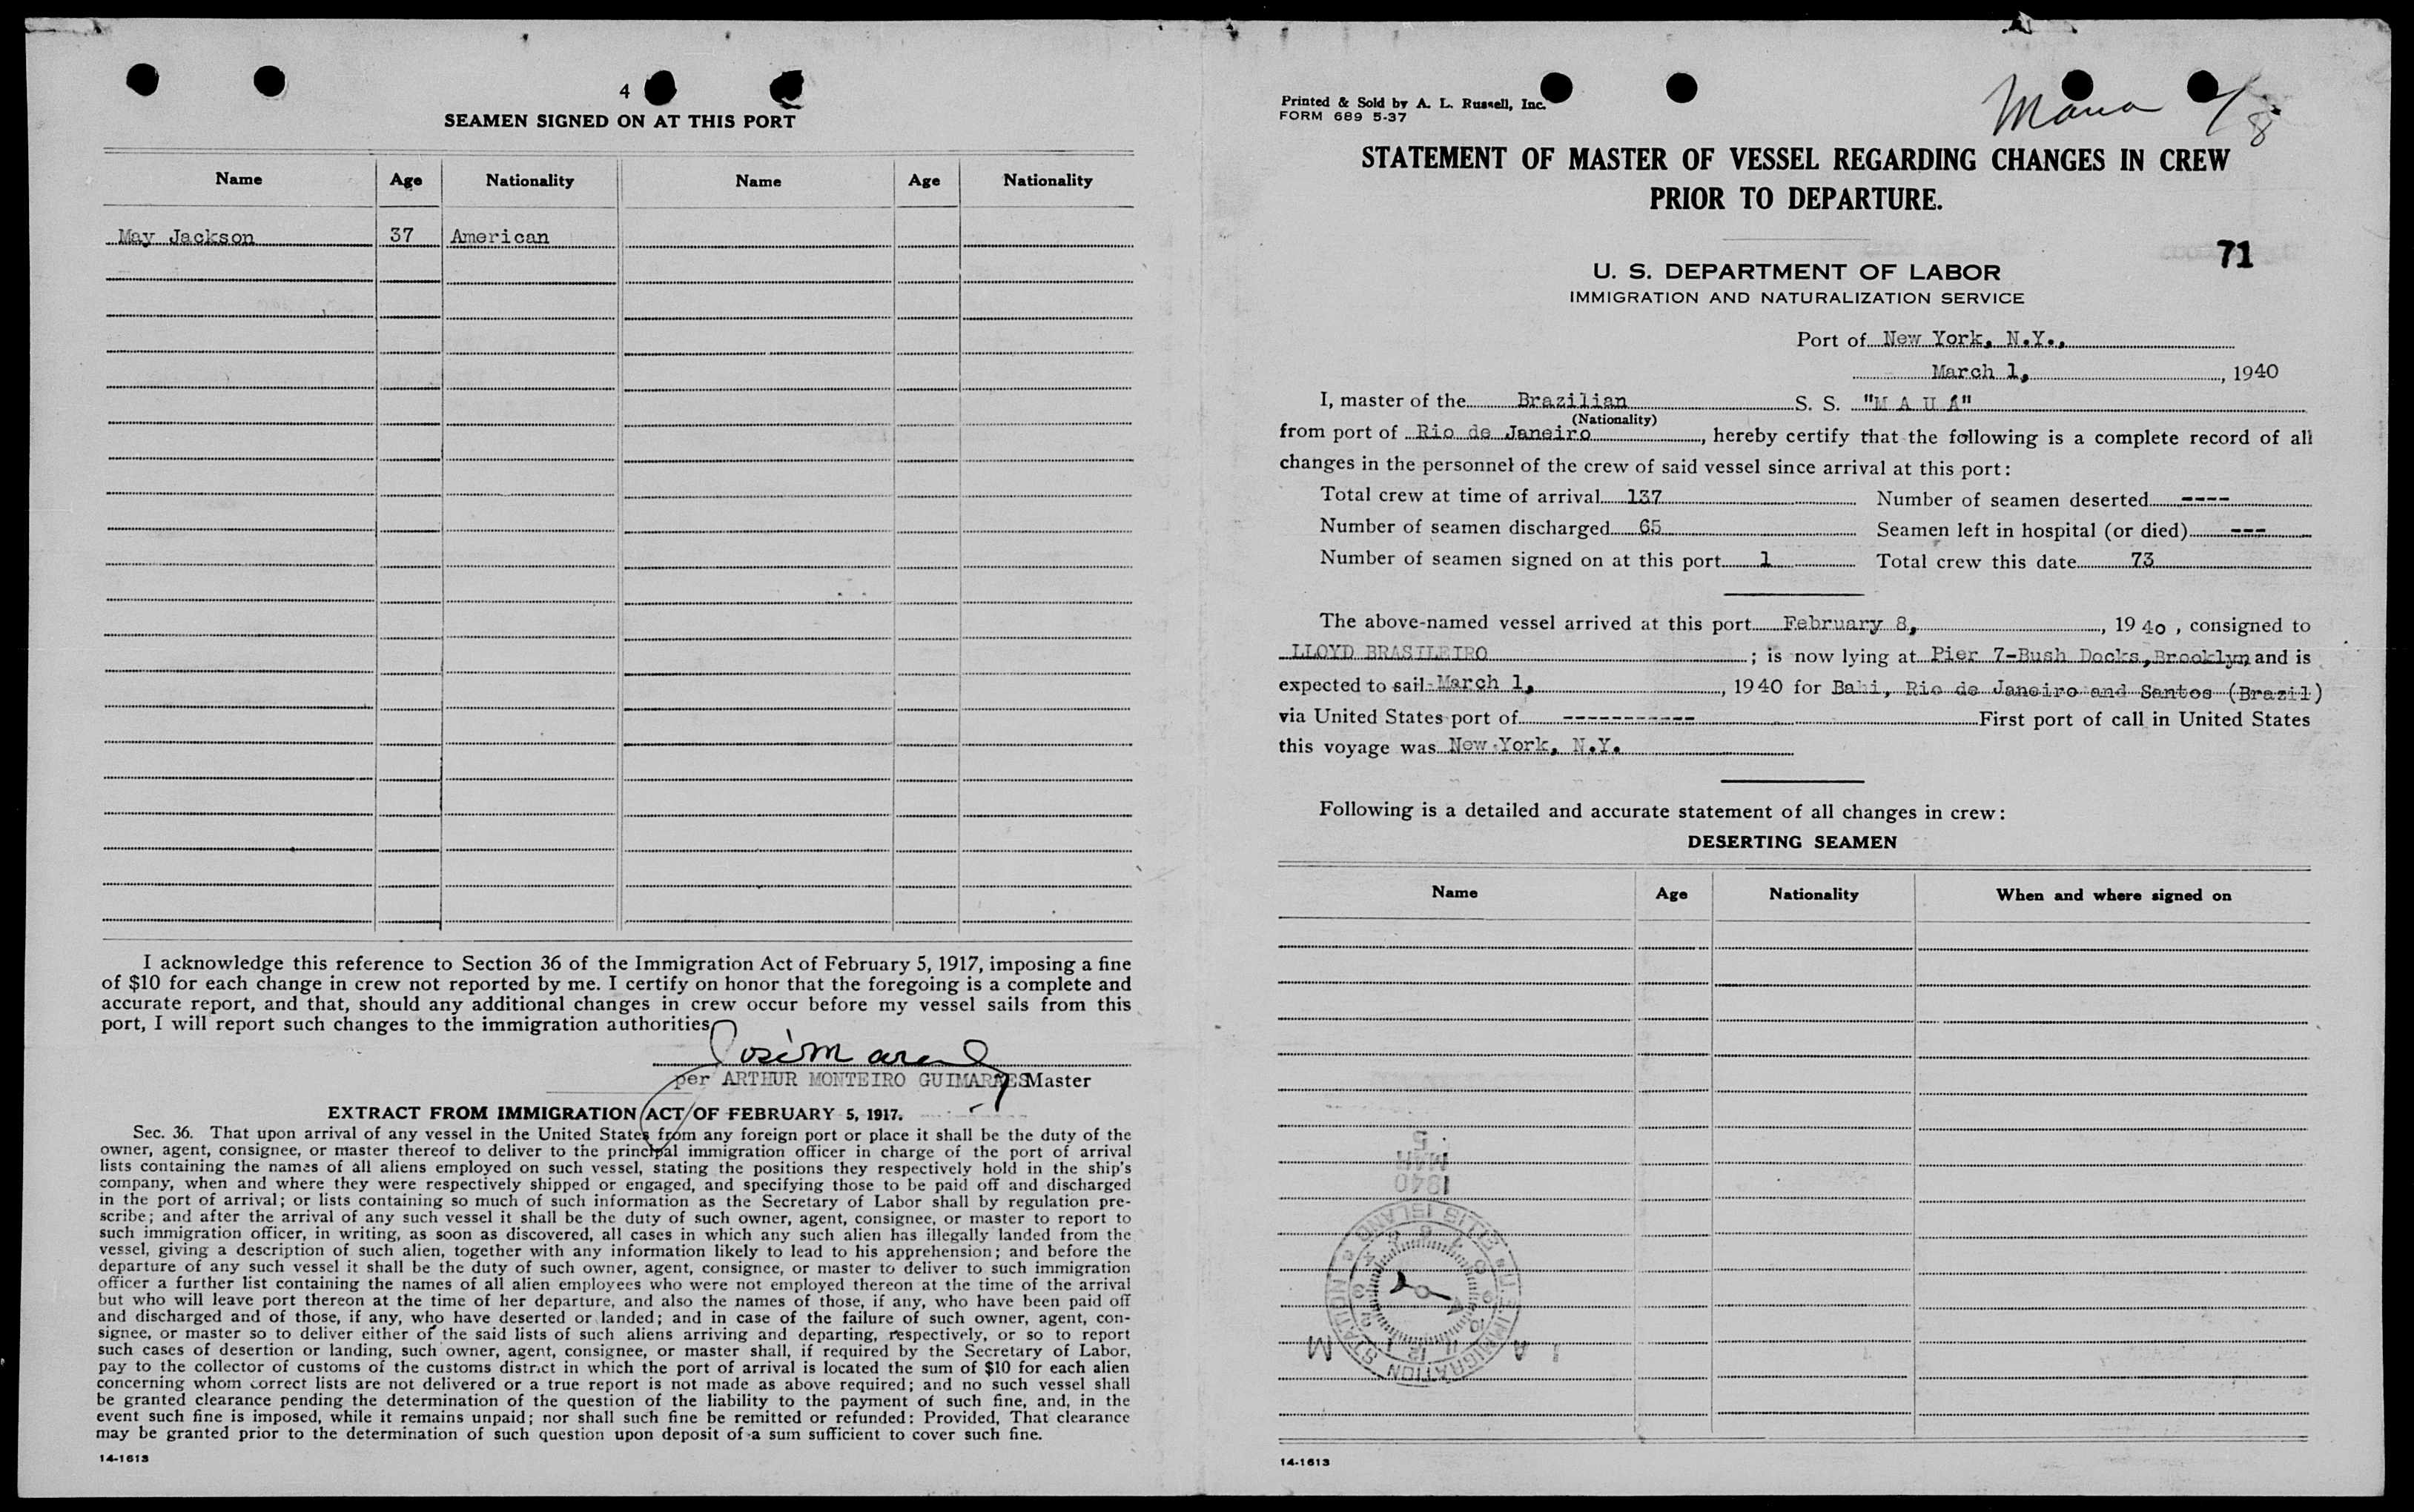 4
SEAMEN SIGNED ON AT THIS PORT
Name Age Nationality Name Age Nationality
May Jackson 37 American
I acknowledge this reference to Section 36 of the Immigration Act of February 5, 1917, imposing a fine
of $10 for each change in crew not reported by me. I certify on honor that the foregoing is a complete and
accurate report, and that, should any additional changes in crew occur before my vessel sails from this
port, I will report such changes to the immigration authorities
per ARTHUR MONTEIRO GUIMARAES Master
EXTRACT FROM IMMIGRATION ACT OF FEBRUARY 5, 1917.
Sec. 36. That upon arrival of any vessel in the United States from any foreign port or place it shall be the duty of the
owner, agent, consignee, or master thereof to deliver to the principal immigration officer in charge of the port of arrival
lists containing the names of all aliens employed on such vessel, stating the positions they respectively hold in the ship's
company, when and where they were respectively shipped or engaged, and specifying those to be paid off and discharged
in the port of arrival; or lists containing so much of such information as the Secretary of Labor shall by regulation pre-
scribe; and after the arrival of any such vessel it shall be the duty of such owner, agent, consignee, or master to report to
such immigration officer, in writing, as soon as discovered, all cases in which any such alien has illegally landed from the
vessel, giving a description of such alien, together with any information likely to lead to his apprehension; and before the
departure of any such vessel it shall be the duty of such owner, agent, consignee, or master to deliver to such immigration
officer a further list containing the names of all alien employees who were not employed thereon at the time of the arrival
but who will leave port thereon at the time of her departure, and also the names of those, if any, who have been paid off
and discharged and of those, if any, who have deserted or landed; and in case of the failure of such owner, agent, con-
signee, or master so to deliver either of the said lists of such aliens arriving and departing, respectively, or so to report
such cases of desertion or landing, such owner, agent, consignee, or master shall, if required by the Secretary of Labor,
pay to the collector of customs of the customs district in which the port of arrival is located the sum of $10 for each alien
concerning whom correct lists are not delivered or a true report is not made as above required; and no such vessel shall
be granted clearance pending the determination of the question of the liability to the payment of such fine, and, in the
event such fine is imposed, while it remains unpaid; nor shall such fine be remitted or refunded: Provided, That clearance
may be granted prior to the determination of such question upon deposit of a sum sufficient to cover such fine.
14-1613
Printed & Sold by A. L. Russell, Inc.
FORM 689 5-37
Maua 2/8
STATEMENT OF MASTER OF VESSEL REGARDING CHANGES IN CREW
PRIOR TO DEPARTURE.
71
U. S. DEPARTMENT OF LABOR
IMMIGRATION AND NATURALIZATION SERVICE
Port of New York, N.Y.,
March 1, , 1940
I, master of the Brazilian S. S. "M A U Á"
(Nationality)
from port of Rio de Janeiro , hereby certify that the following is a complete record of all
changes in the personnel of the crew of said vessel since arrival at this port:
Total crew at time of arrival 137 Number of seamen deserted ----
Number of seamen discharged 65 Seamen left in hospital (or died) ---
Number of seamen signed on at this port 1 Total crew this date 73
The above-named vessel arrived at this port February 8, , 1940 , consigned to
LLOYD BRASILEIRO ; is now lying at Pier 7-Bush Docks, Brooklyn and is
expected to sail March 1, , 1940 for Bahi, Rio de Janeiro and Santos (Brazil)
via United States port of ----------- First port of call in United States
this voyage was New York, N.Y.
Following is a detailed and accurate statement of all changes in crew:
DESERTING SEAMEN
Name Age Nationality When and where signed on
5
MAR
1940
U.S. IMMIGRATION STATION ELLIS ISLAND
A M
14-1613